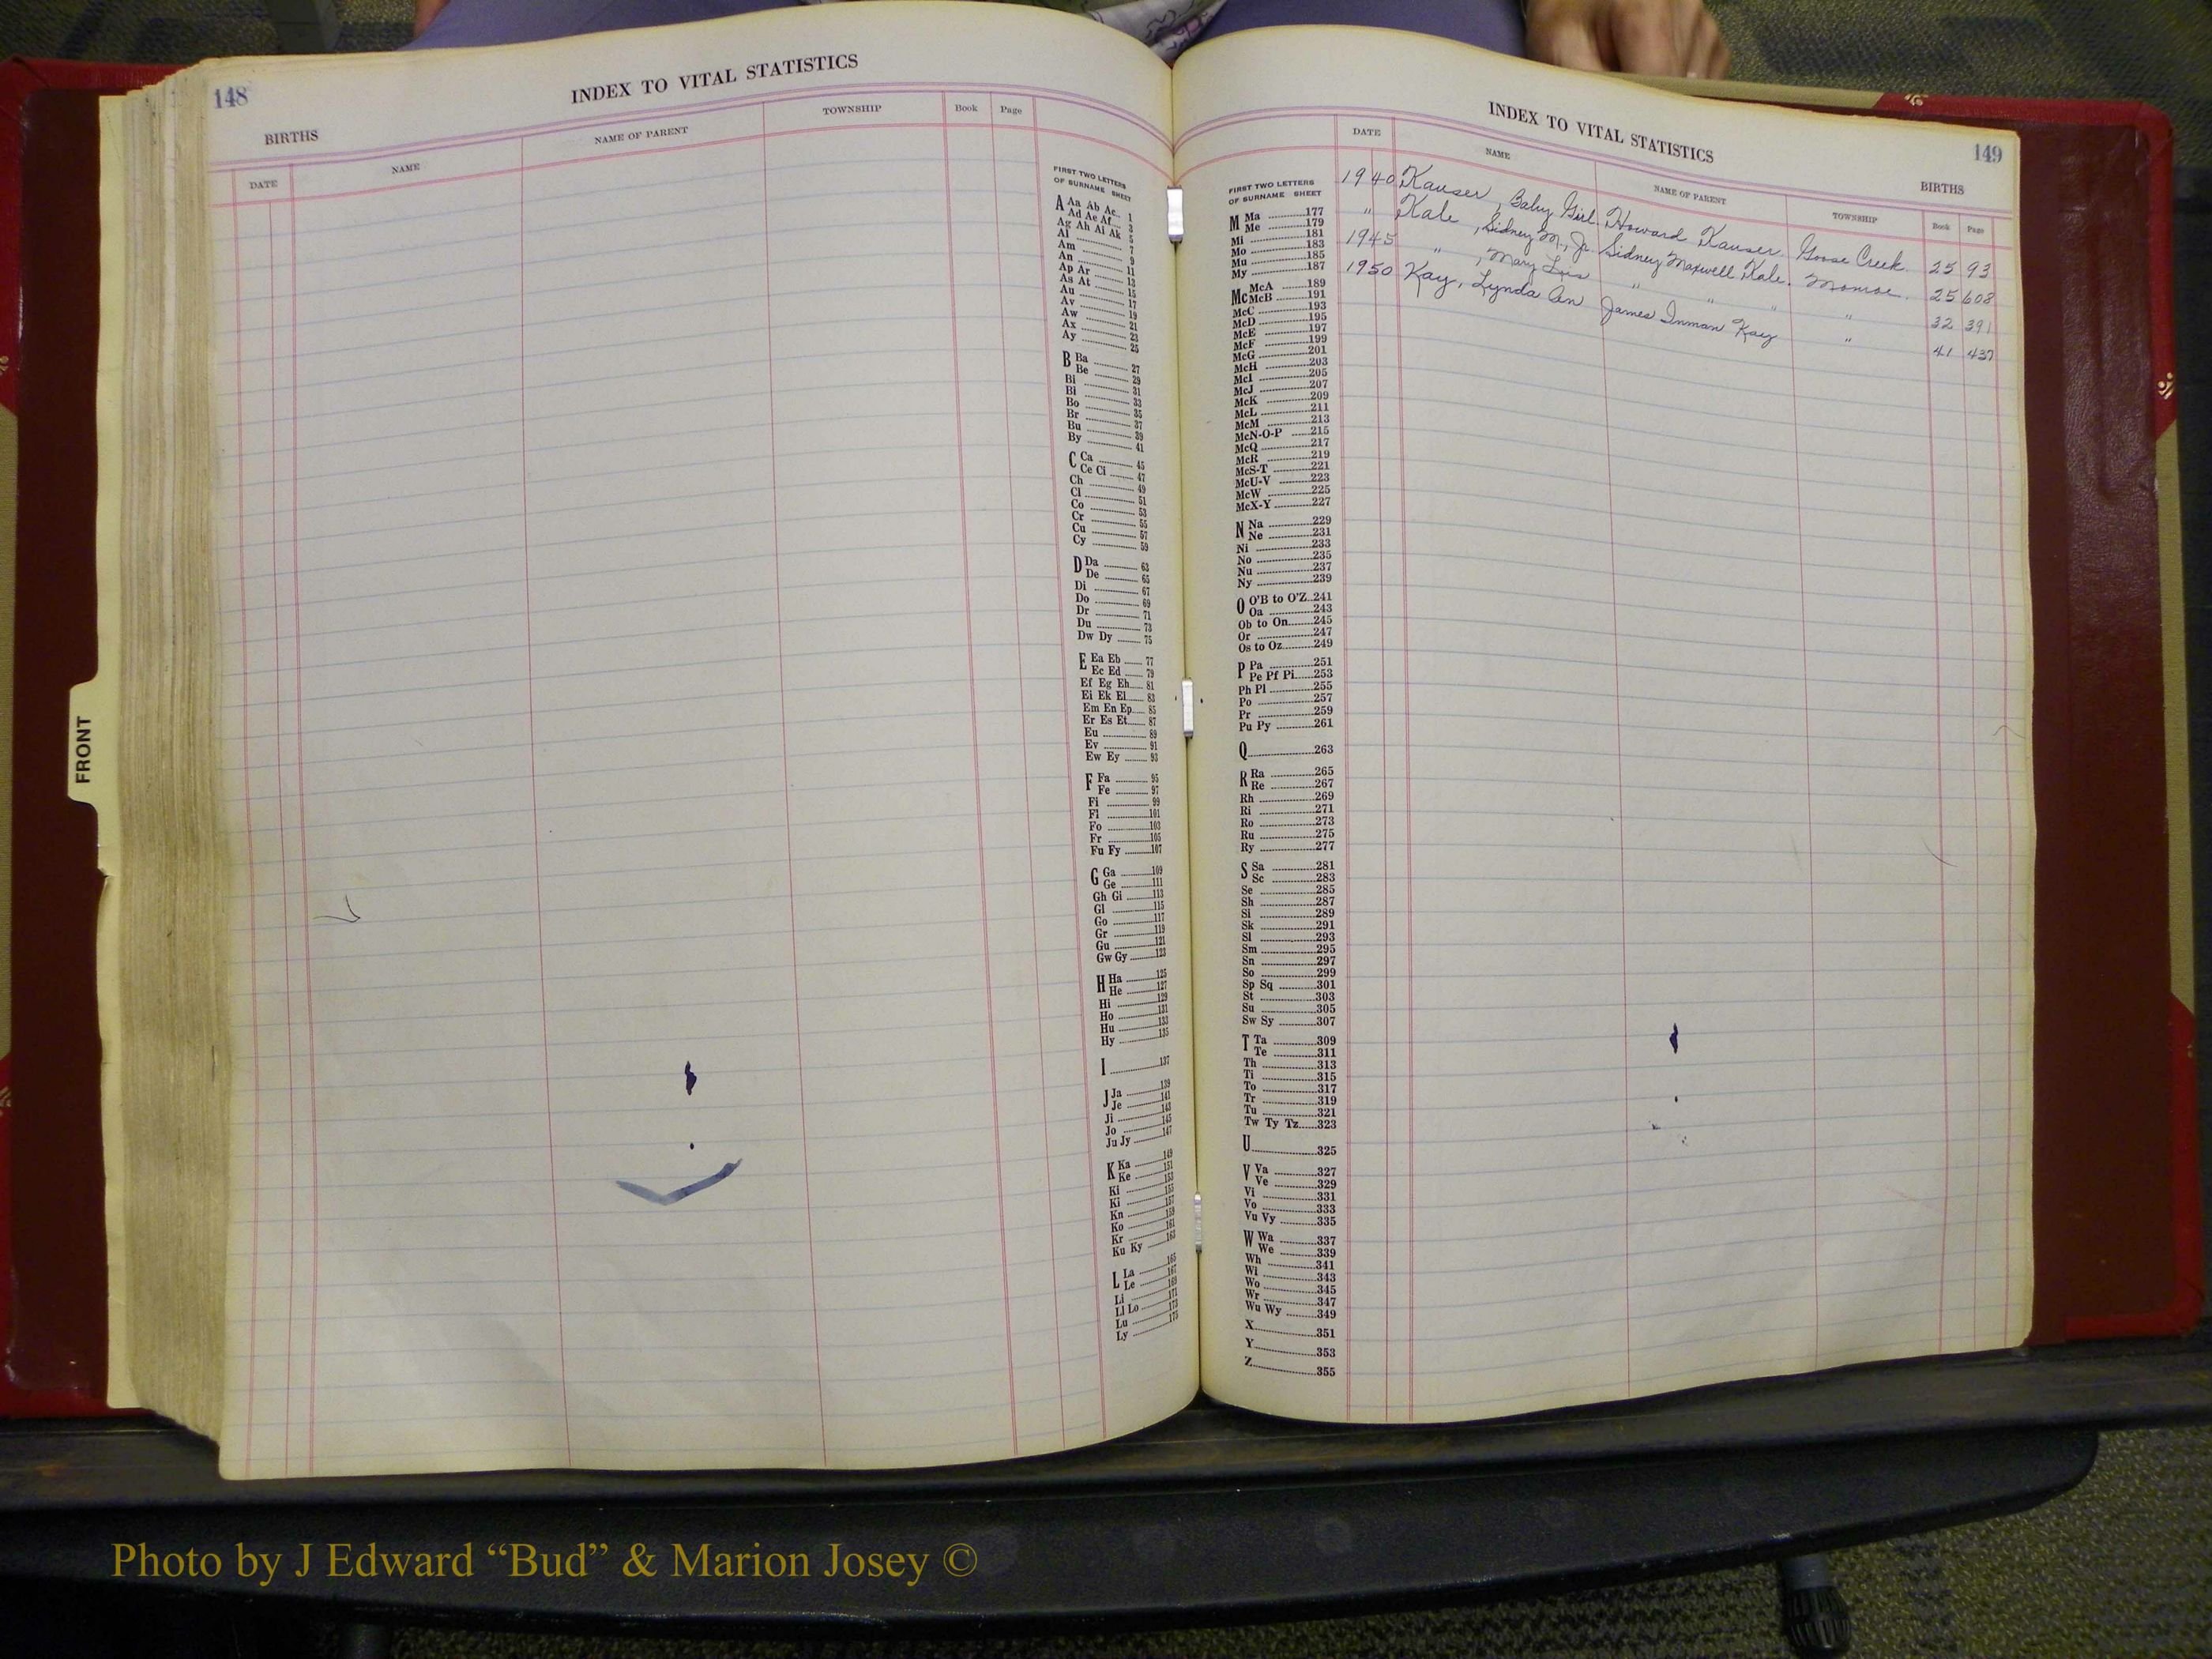 148
INDEX TO VITAL STATISTICS
BIRTHS
DATE NAME NAME OF PARENT TOWNSHIP Book Page
FIRST TWO LETTERS
OF SURNAME SHEET
A Aa Ab Ac 1
Ad Ae Af 3
Ag Ah Ai Ak 5
Al 7
Am 9
An 11
Ap Ar 13
As At 15
Au 17
Av 19
Aw 21
Ax 23
Ay 25
B Ba 27
Be 29
Bi 31
Bl 33
Bo 35
Br 37
Bu 39
By 41
C Ca 45
Ce Ci 47
Ch 49
Cl 51
Co 53
Cr 55
Cu 57
Cy 59
D Da 63
De 65
Di 67
Do 69
Dr 71
Du 73
Dw Dy 75
E Ea Eb 77
Ec Ed 79
Ef Eg Eh 81
Ei Ek El 83
Em En Ep 85
Er Es Et 87
Eu 89
Ev 91
Ew Ey 93
F Fa 95
Fe 97
Fi 99
Fl 101
Fo 103
Fr 105
Fu Fy 107
G Ga 109
Ge 111
Gh Gi 113
Gl 115
Go 117
Gr 119
Gu 121
Gw Gy 123
H Ha 125
He 127
Hi 129
Ho 131
Hu 133
Hy 135
I 137
J Ja 139
Je 141
Ji 143
Jo 145
Ju Jy 147
K Ka 149
Ke 151
Ki 153
Kl 157
Kn 159
Ko 161
Kr 163
Ku Ky
L La 165
Le 167
Li 169
Ll Lo 171
Lu 173
Ly 175
FRONT
149
INDEX TO VITAL STATISTICS
BIRTHS
DATE NAME NAME OF PARENT TOWNSHIP Book Page
1940 Kauser, Baby Girl Howard Kauser Goose Creek 25 93
" Kale, Sidney M., Jr. Sidney Maxwell Kale Monroe 25 608
1945 " , Mary Lois " " " " 32 391
1950 Kay, Lynda An James Inman Kay " 41 437
FIRST TWO LETTERS
OF SURNAME SHEET
M Ma 177
Me 179
Mi 181
Mo 183
Mu 185
My 187
Mc McA 189
McB 191
McC 193
McD 195
McE 197
McF 199
McG 201
McH 203
McI 205
McJ 207
McK 209
McL 211
McM 213
McN-O-P 215
McQ 217
McR 219
McS-T 221
McU-V 223
McW 225
McX-Y 227
N Na 229
Ne 231
Ni 233
No 235
Nu 237
Ny 239
O O'B to O'Z 241
Oa 243
Ob to On 245
Or 247
Os to Oz 249
P Pa 251
Pe Pf Pi 253
Ph Pl 255
Po 257
Pr 259
Pu Py 261
Q 263
R Ra 265
Re 267
Rh 269
Ri 271
Ro 273
Ru 275
Ry 277
S Sa 281
Sc 283
Se 285
Sh 287
Si 289
Sk 291
Sl 293
Sm 295
Sn 297
So 299
Sp Sq 301
St 303
Su 305
Sw Sy 307
T Ta 309
Te 311
Th 313
Ti 315
To 317
Tr 319
Tu 321
Tw Ty Tz 323
U 325
V Va 327
Ve 329
Vi 331
Vo 333
Vu Vy 335
W Wa 337
We 339
Wh 341
Wi 343
Wo 345
Wr 347
Wu Wy 349
X 351
Y 353
Z 355
Photo by J Edward “Bud” & Marion Josey ©